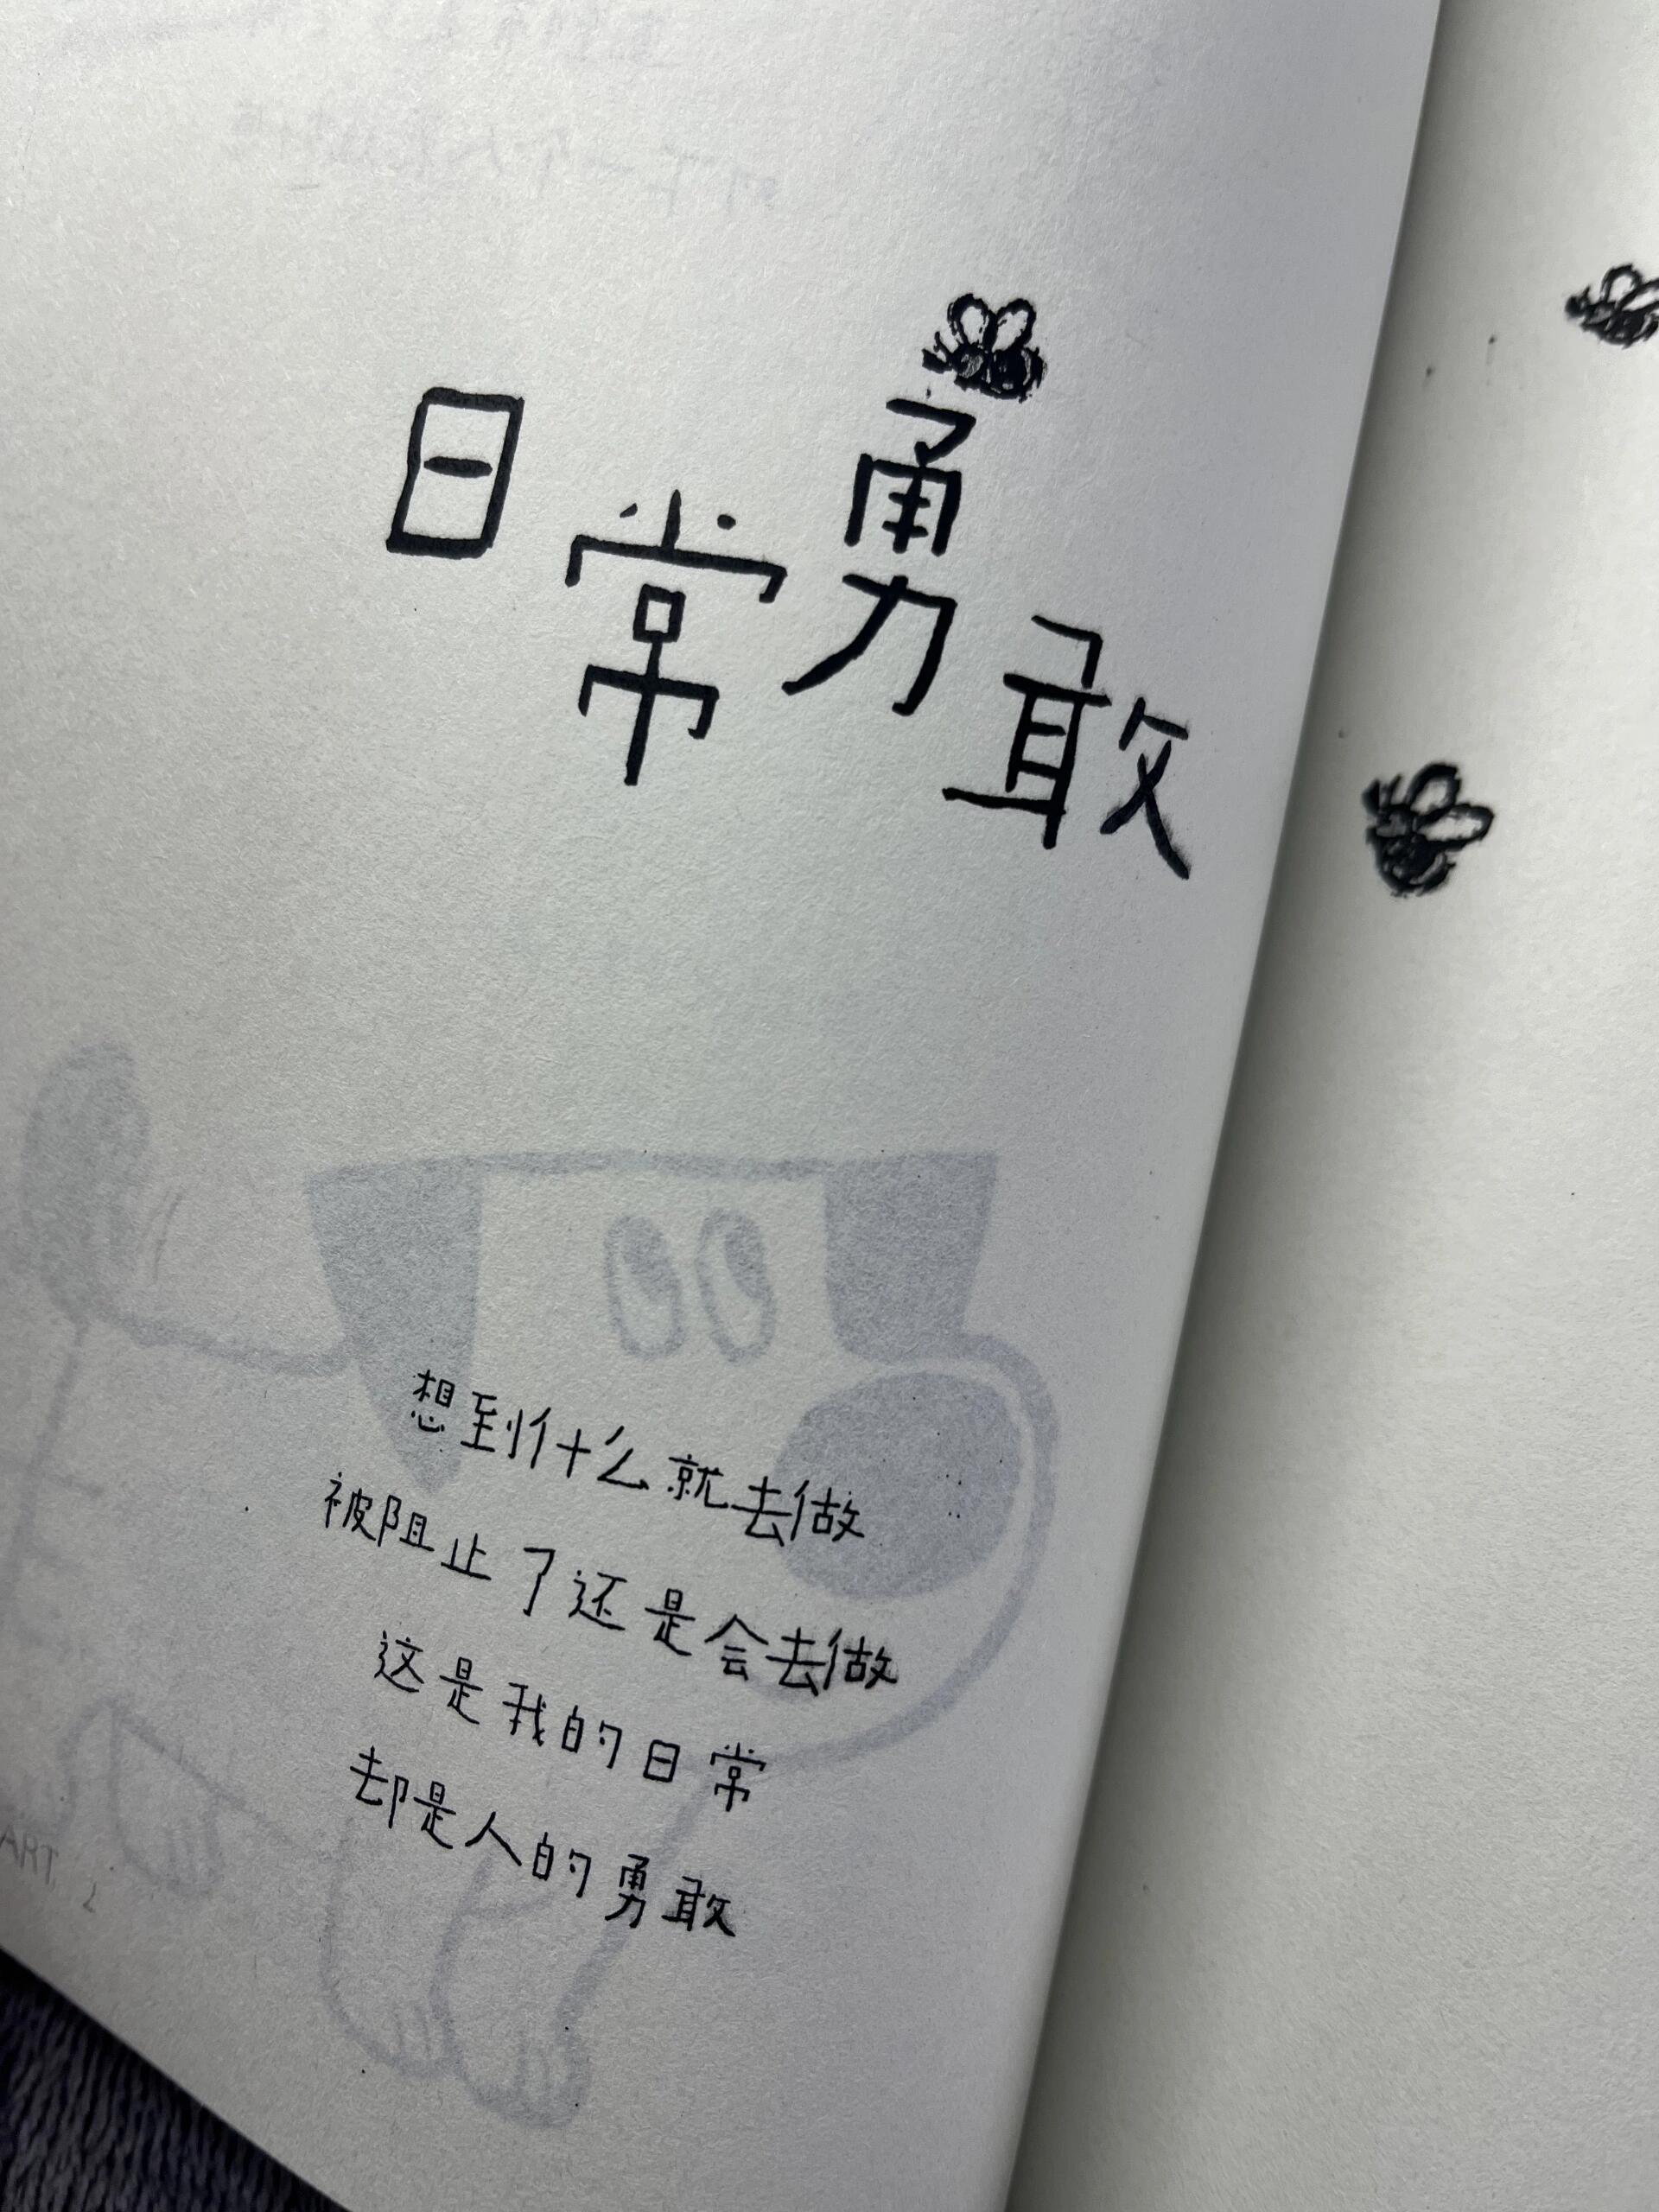 日常勇敢
想到什么就去做
被阻止了还是会去做
这是我的日常
却是人的勇敢
ART 2